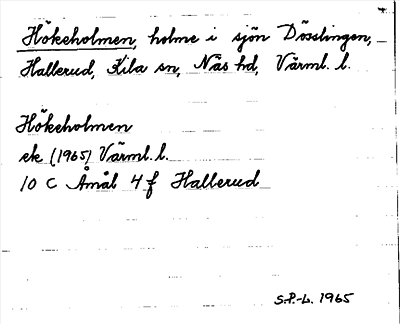 Hökeholmen, holme i sjön Dösslingen,
Hallerud, Kila sn, Näs hd, Värml. l.
Hökeholmen
ek (1965) Värml. l.
10 C Åmål 4 f Hallerud
S.P.-L. 1965